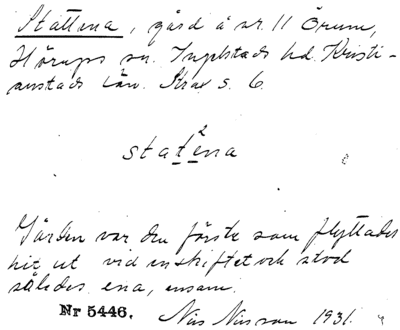 Stattena, gård å nr. 11 Örum,
Hörups sn. Ingelstads hd. Kristi-
anstads län. Skae s. 6.
2
statena
Gården var den förste som flyttades
hit ut vid enskiftet och stod
således ena, ensam.
Nr 5446. Nils Nilsson 1931.